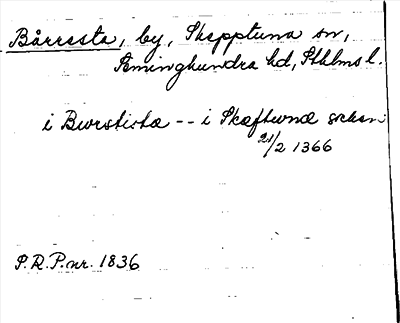 Bårresta, by, Skepptuna sn,
Seminghundra hd, Sthlms l.
i Biurstista -- i Skæftunæ soken
21/2 1366
S.R.P. nr. 1836